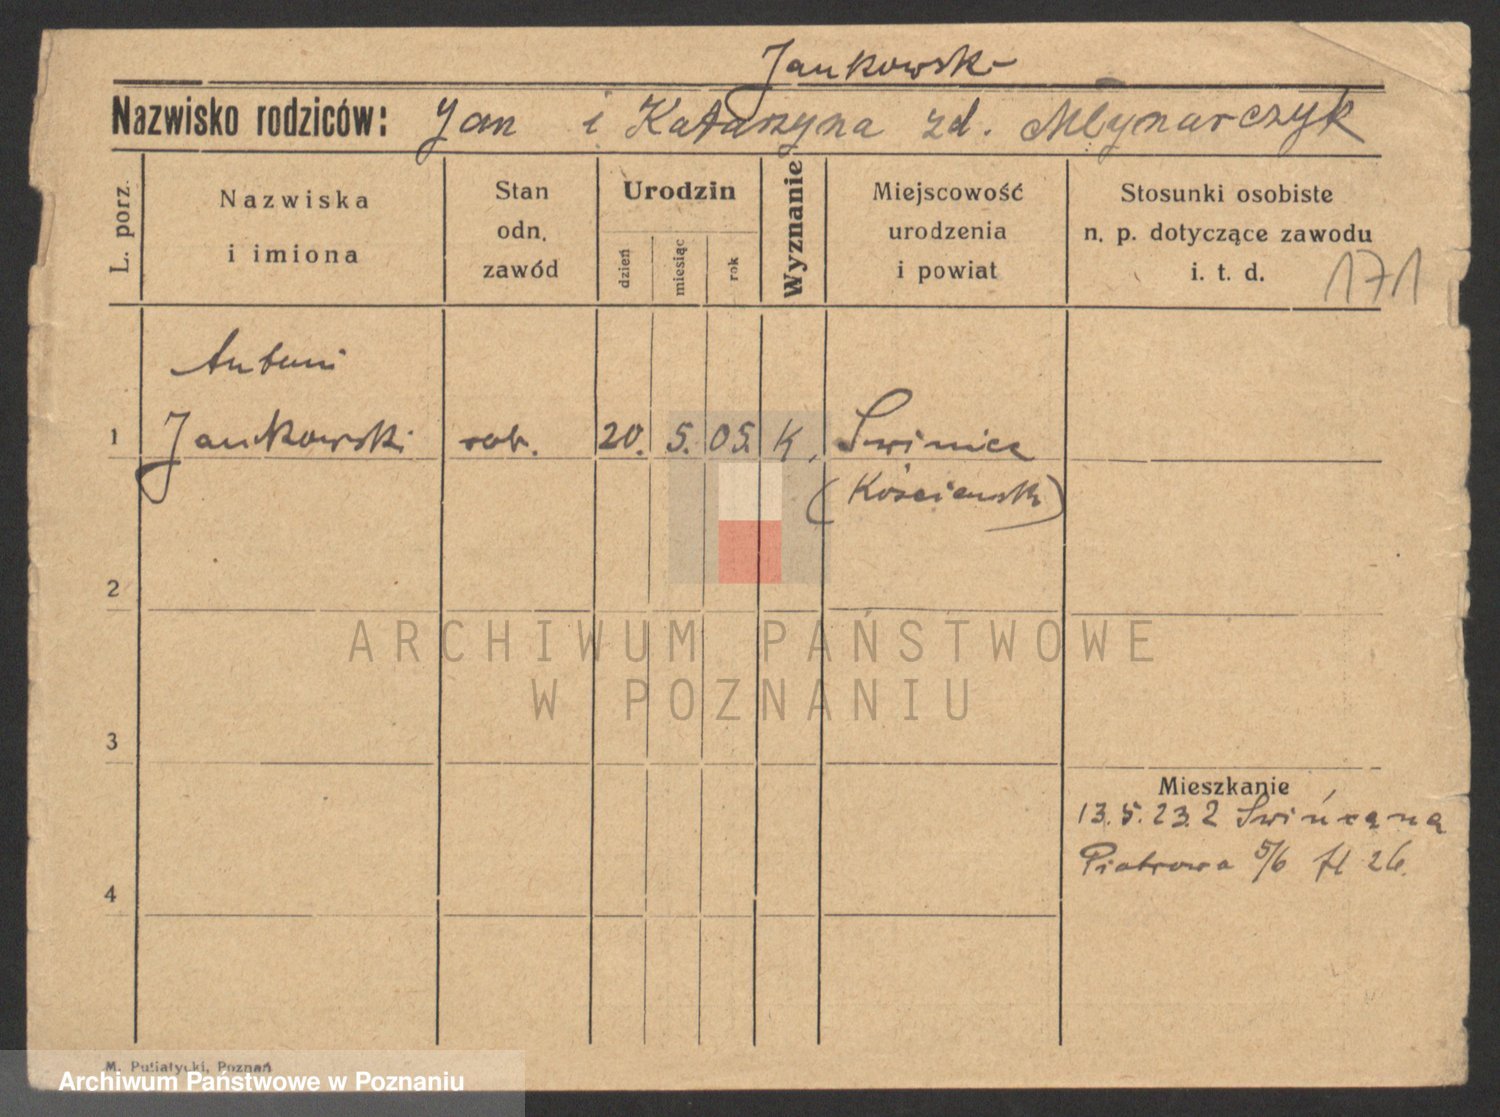 Jankowski
Nazwisko rodziców: Jan i Katarzyna zd. Młynarczyk
L. porz.
Nazwiska
i imiona
Stan
odn.
zawód
Urodzin
dzień
miesiąc
rok
Wyznanie
Miejscowość
urodzenia
i powiat
Stosunki osobiste
n. p. dotyczące zawodu
i. t. d.
171
Antoni
1 Jankowski rob. 20. 5. 05. K.
(Kościański)
2
ARCHIWUM PAŃSTWOWE
W POZNANIU
3
Mieszkanie
13.5.23 z
Piotrowa 5/6
4
M. Putiatycki, Poznań
Archiwum Państwowe w Poznaniu